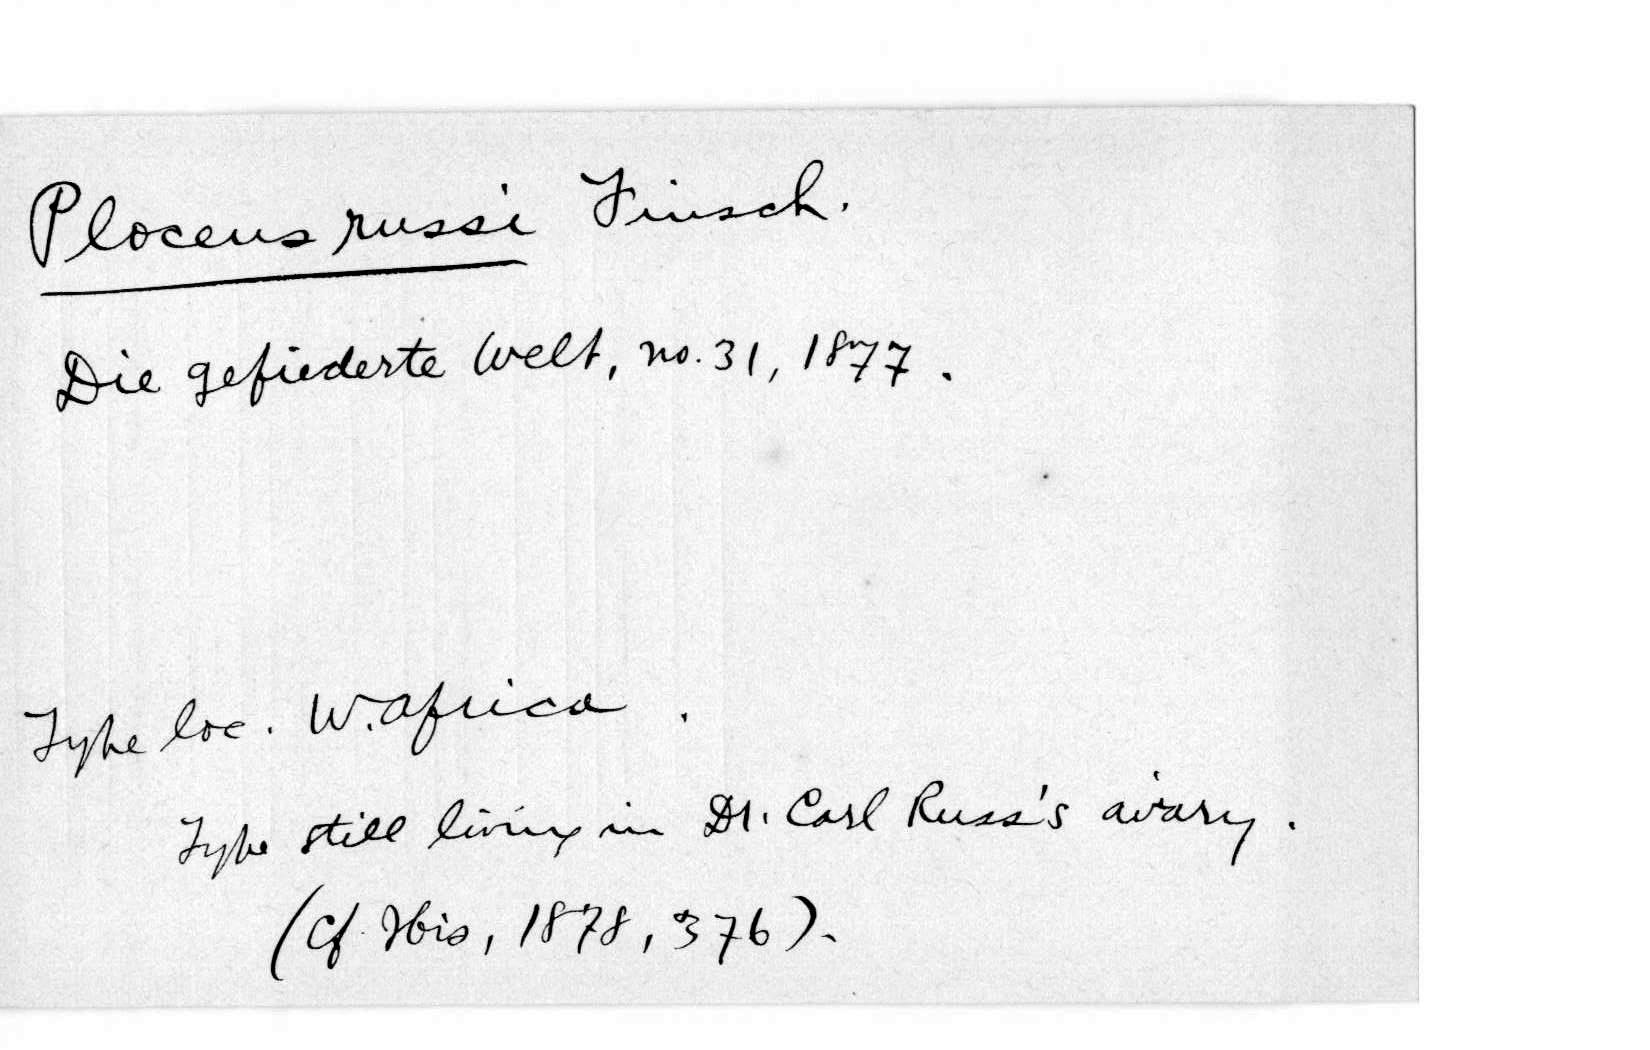 Ploceus russi Finsch.
Die gefiederte Welt, no. 31, 1877.
Type loc. W. Africa.
Type still living in Dr. Carl Russ's aviary.
(Cf. Ibis, 1878, 376).